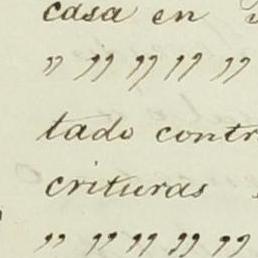 casa en
" " " " "
tado contr
crituras
" " " " "